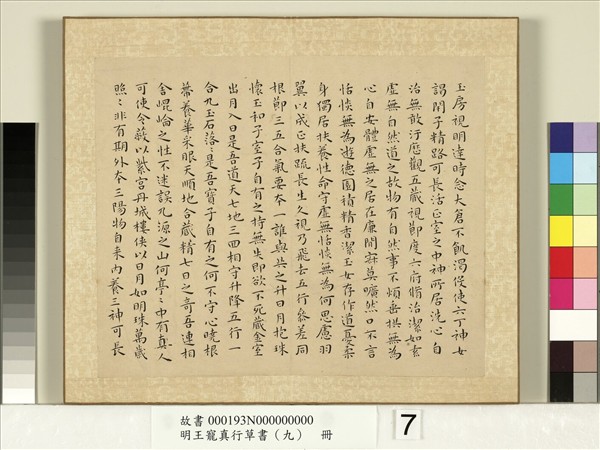 玉房視明達時念大倉不飢渴役使六丁神女
謁閉子精路可長活正室之中神所居洗心自
治無敢汙歷觀五藏視節度六府脩治潔如素
虛無自然道之故物有自然事不煩垂拱無為
心自安體虛無之居在廉間寂莫曠然口不言
恬惔無為遊德園積精香潔玉女存作道憂柔
身獨居扶養性命守虛無恬惔無為何思慮羽
翼以成正扶疏長生久視乃飛去五行參差同
根節三五合氣要本一誰與共之升日月抱珠
懷玉和子室子自有之持無失即欲不死藏金室
出月入日是吾道天七地三回相守升降五行一
合九玉石落〻是吾寶子自有之何不守心曉根
蔕養華采服天順地合藏精七日之奇吾連相
舍崐崘之性不迷誤九源之山何亭〻中有真人
可使令蔽以紫宮丹城樓俠以日月如明珠萬歲
照〻非有期外本三陽物自来內養三神可長
故書 000193N000000000
明王寵真行草書（九） 冊
7